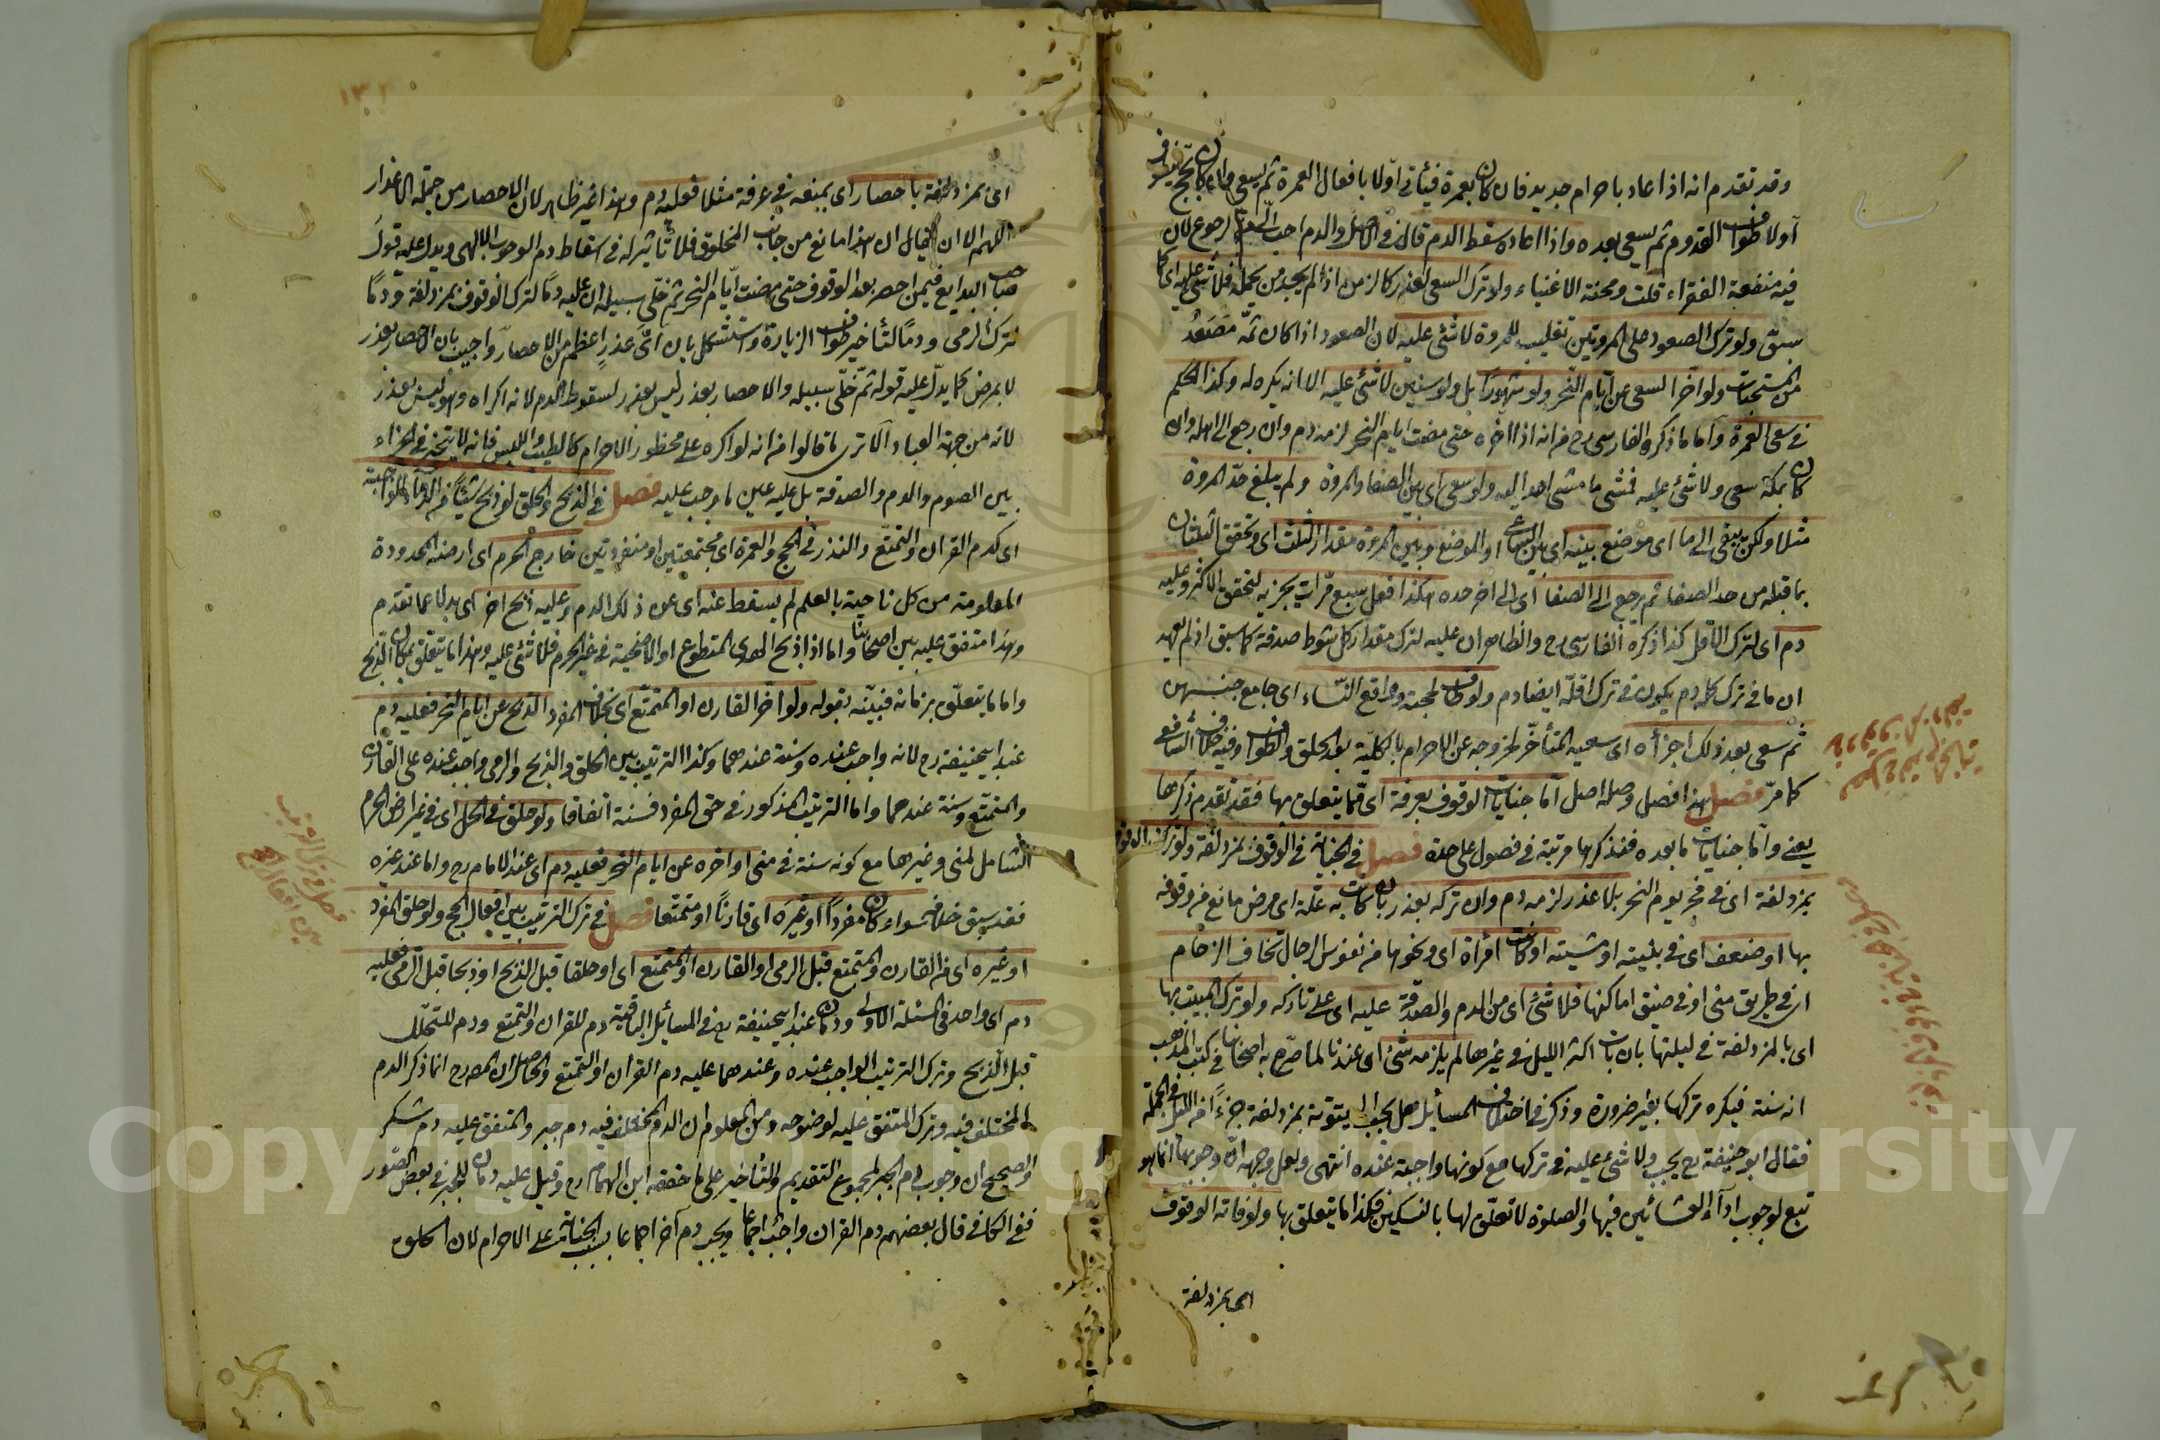 وقد تقدم انه اذا عاد باحرام جديد فان كان بعمرة فيأتي اولا بافعال العمرة ثم يسعى وان كان بحج فيطوف
اولا طواف القدوم ثم يسعى بعده واذا اعاده سقط الدم قال في الاصل والدم احب الي من الرجوع لان
فيه منفعة الفقراء قلت ومحنة الاغنياء ولو ترك السعي لعذر كالزمن اذا لم يجد من يحمله فلا شئ عليه اي كما
سبق ولو ترك الصعود على المروتين تغليب للمروة لا شئ عليه لان الصعود اذا كان ثمة مصعد
من المستحبات ولو اخر السعي عن ايام النحر ولو شهورا بل ولو سنين لا شئ عليه الا انه يكره له وكذا الحكم
في سعي العمرة واما ما ذكره الفارسي رح من انه اذا اخره حتى مضت ايام النحر لزمه دم وان رجع الى اهله وان
كان بمكة سعى ولا شئ عليه فمشى ما مشى اهدا اليه ولو سعى اي بين الصفا والمروة ولم يبلغ حد المروة
مثلا ولكن يبقى الى ما اي موضع بينه اي بين الساعي او الموضع وبين المروة مقدار الثلث اي وتحقق الثلثان
بما قبله من حد الصفا ثم يرجع الى الصفا اي الى اخر حده هكذا فعل سبع مرات يجزيه لتحقق الاكثر وعليه
دم اي لترك الاقل كذا ذكره الفارسي رح والظاهر ان عليه لترك مقدار كل شوط صدقة كما سبق اذ لم يعهد
ان ما في ترك كله دم يكون في ترك اقله ايضا دم ولو طاف لحجته وواقع النساء اي جامع جنسهن
ثم سعى بعد ذلك اجزأه اي سعيه المتأخر لخروجه عن الاحرام بالكلية بعد الحلق والطواف وفيه خلاف الشافعي
كما مر فصل هذا فصل وصله اصل اما جنايات الوقوف بعرفة اي مما يتعلق بها فقد تقدم ذكرها
يعني واما جنايات ما بعده فنذكرها مرتبة في فصول على حدة فصل في الجناية في الوقوف بمزدلفة ولو ترك الوقوف
بمزدلفة اي في فجر يوم النحر بلا عذر لزمه دم وان تركه بعذر بان كانت به علة اي مرض مانع من وقوفه
بها او ضعف اي في بنيته او مشيته او كانت امرأة اي ونحوها من نفوس الرجال تخاف الزحام
اي في طريق منى او في ضيق اماكنها فلا شئ اي من الدم والصدقة عليه اي على تاركه ولو ترك المبيت بها
اي بالمزدلفة في ليلتها بان بات اكثر الليل في غيرها لم يلزمه شئ اي عندنا لما صرح به اصحابنا في كتب المذهب
انه سنة فيكره تركها بغير ضرورة وذكر في اختلاف المسائيل هل يجب البيتوتة بمزدلفة جزءا من الليل في الجملة
فقال ابو حنيفة رح يجب ولا شئ عليه في تركها مع كونها واجبة عنده انتهى ولعل وجهه ان وجوبها انما هو
تبع لوجوب اداء العشائين فيها والصلوة لا تعلق لها بالنسكين فكذا ما يتعلق بها ولو فاته الوقوف
اي بمزدلفة
اي بمزدلفة باحصار اي بمنعه في عرفة مثلا فعليه دم وهذا غير ظاهر لان الاحصار من جملة الاعذار
اللهم الا ان يقال ان هذا مانع من جانب المخلوق فلا تأثير له في اسقاط دم الوجوب الالهي ويدل عليه قول
صاحب البدايع فيمن احصر بعد الوقوف حتى مضت ايام النحر ثم خلي سبيله ان عليه دما لترك الوقوف بمزدلفة ودما
لترك الرمي ودما لتأخير طواف الزيارة واستشكل بان اي عذر اعظم من الاحصار واجيب بان الاحصار بعذر
لا بمرض كما يدل عليه قوله ثم خلى سبيله والاحصار بعذر ليس بعذر لسقوط الدم لانه اكراه وهو ليس بعذر
لانه من جهة العباد الا ترى ما قالوا من انه لو اكره على محظور الاحرام كالطيب واللبس فانه لا يتخير في الجزاء
بين الصوم والدم والصدقة بل عليه عين ما وجب عليه فصل في الذبح والحلق لو ذبح شيئا من الدماء الواجبة
اي كدم القران والتمتع والنذر في الحج والعمرة اي مجتمعتين او منفردتين خارج الحرم اي ارضه المحدودة
المعلومة من كل ناحية بالعلم لم يسقط عنه اي عن ذلك الدم وعليه ذبح اخر اي بدلا عما تقدم
وهذا متفق عليه بين اصحابنا واما اذا ذبح الهدي المتطوع او الاضحية في غير الحرم فلا شئ عليه وهذا ما يتعلق بمكان الذبح
واما ما يتعلق بزمانه فبينه بقوله ولو اخر القارن او المتمتع اي بخلاف المفرد الذبح عن ايام النحر فعليه دم
عند ابيحنيفة رح لانه واجب عنده وسنة عندهما وكذا الترتيب بين الحلق والذبح والرمي واجب عنده على القارن
والمتمتع وسنة عندهما واما الترتيب المذكور في حق المفرد فسنة اتفاقا ولو حلق في الحل اي في غير ارض الحرم
الشامل لمنى وغيرها مع كونه سنة في منى او اخره عن ايام النحر فعليه دم اي عند الامام رح واما عند غيره
فقد سبق خلافه سواء كان مفردا او غيره اي قارنا او متمتعا فصل في ترك الترتيب بين افعال الحج ولو حلق المفرد
او غيره اي من القارن والمتمتع قبل الرمي او القارن او المتمتع اي او حلقا قبل الذبح او ذبحا قبل الرمي فعليه
دم اي واحد في المسئلة الاولى ودمان عند ابيحنيفة رح في المسائل الباقية دم للقران والتمتع ودم للتحلل
قبل الذبح وترك الترتيب الواجب عنده وعندهما عليه دم القران او التمتع والحاصل ان المص رح انما ذكر الدم
المختلف فيه وترك المتفق عليه لوضوحه ومن المعلوم ان الدم المختلف فيه دم جبر والمتفق عليه دم شكر
والصحيح ان وجوب دم الجبر لمجموع التقديم والتأخير على ما حققه ابن الهمام رح وقيل عليه دمان للجبر في بعض الصور
ففي الكافي قال بعضهم دم القران واجب اجماعا ويجب دم آخر اجماعا بسبب الجناية على الاحرام لان الحلق
فصل في ترك الترتيب
بين افعال الحج